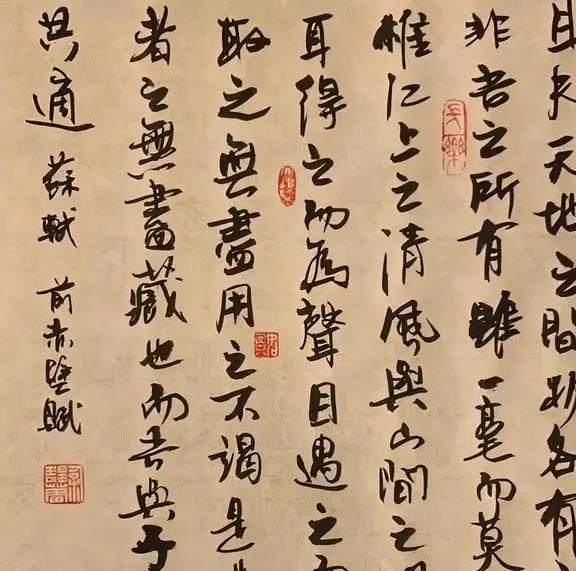 且夫天地之間物各有
非吾之所有雖一毫而莫
惟江上之清風與山間之
耳得之而為聲目遇之而
取之無盡用之不竭是
者之無盡藏也而吾與子
共適 蘇軾 前赤壁賦